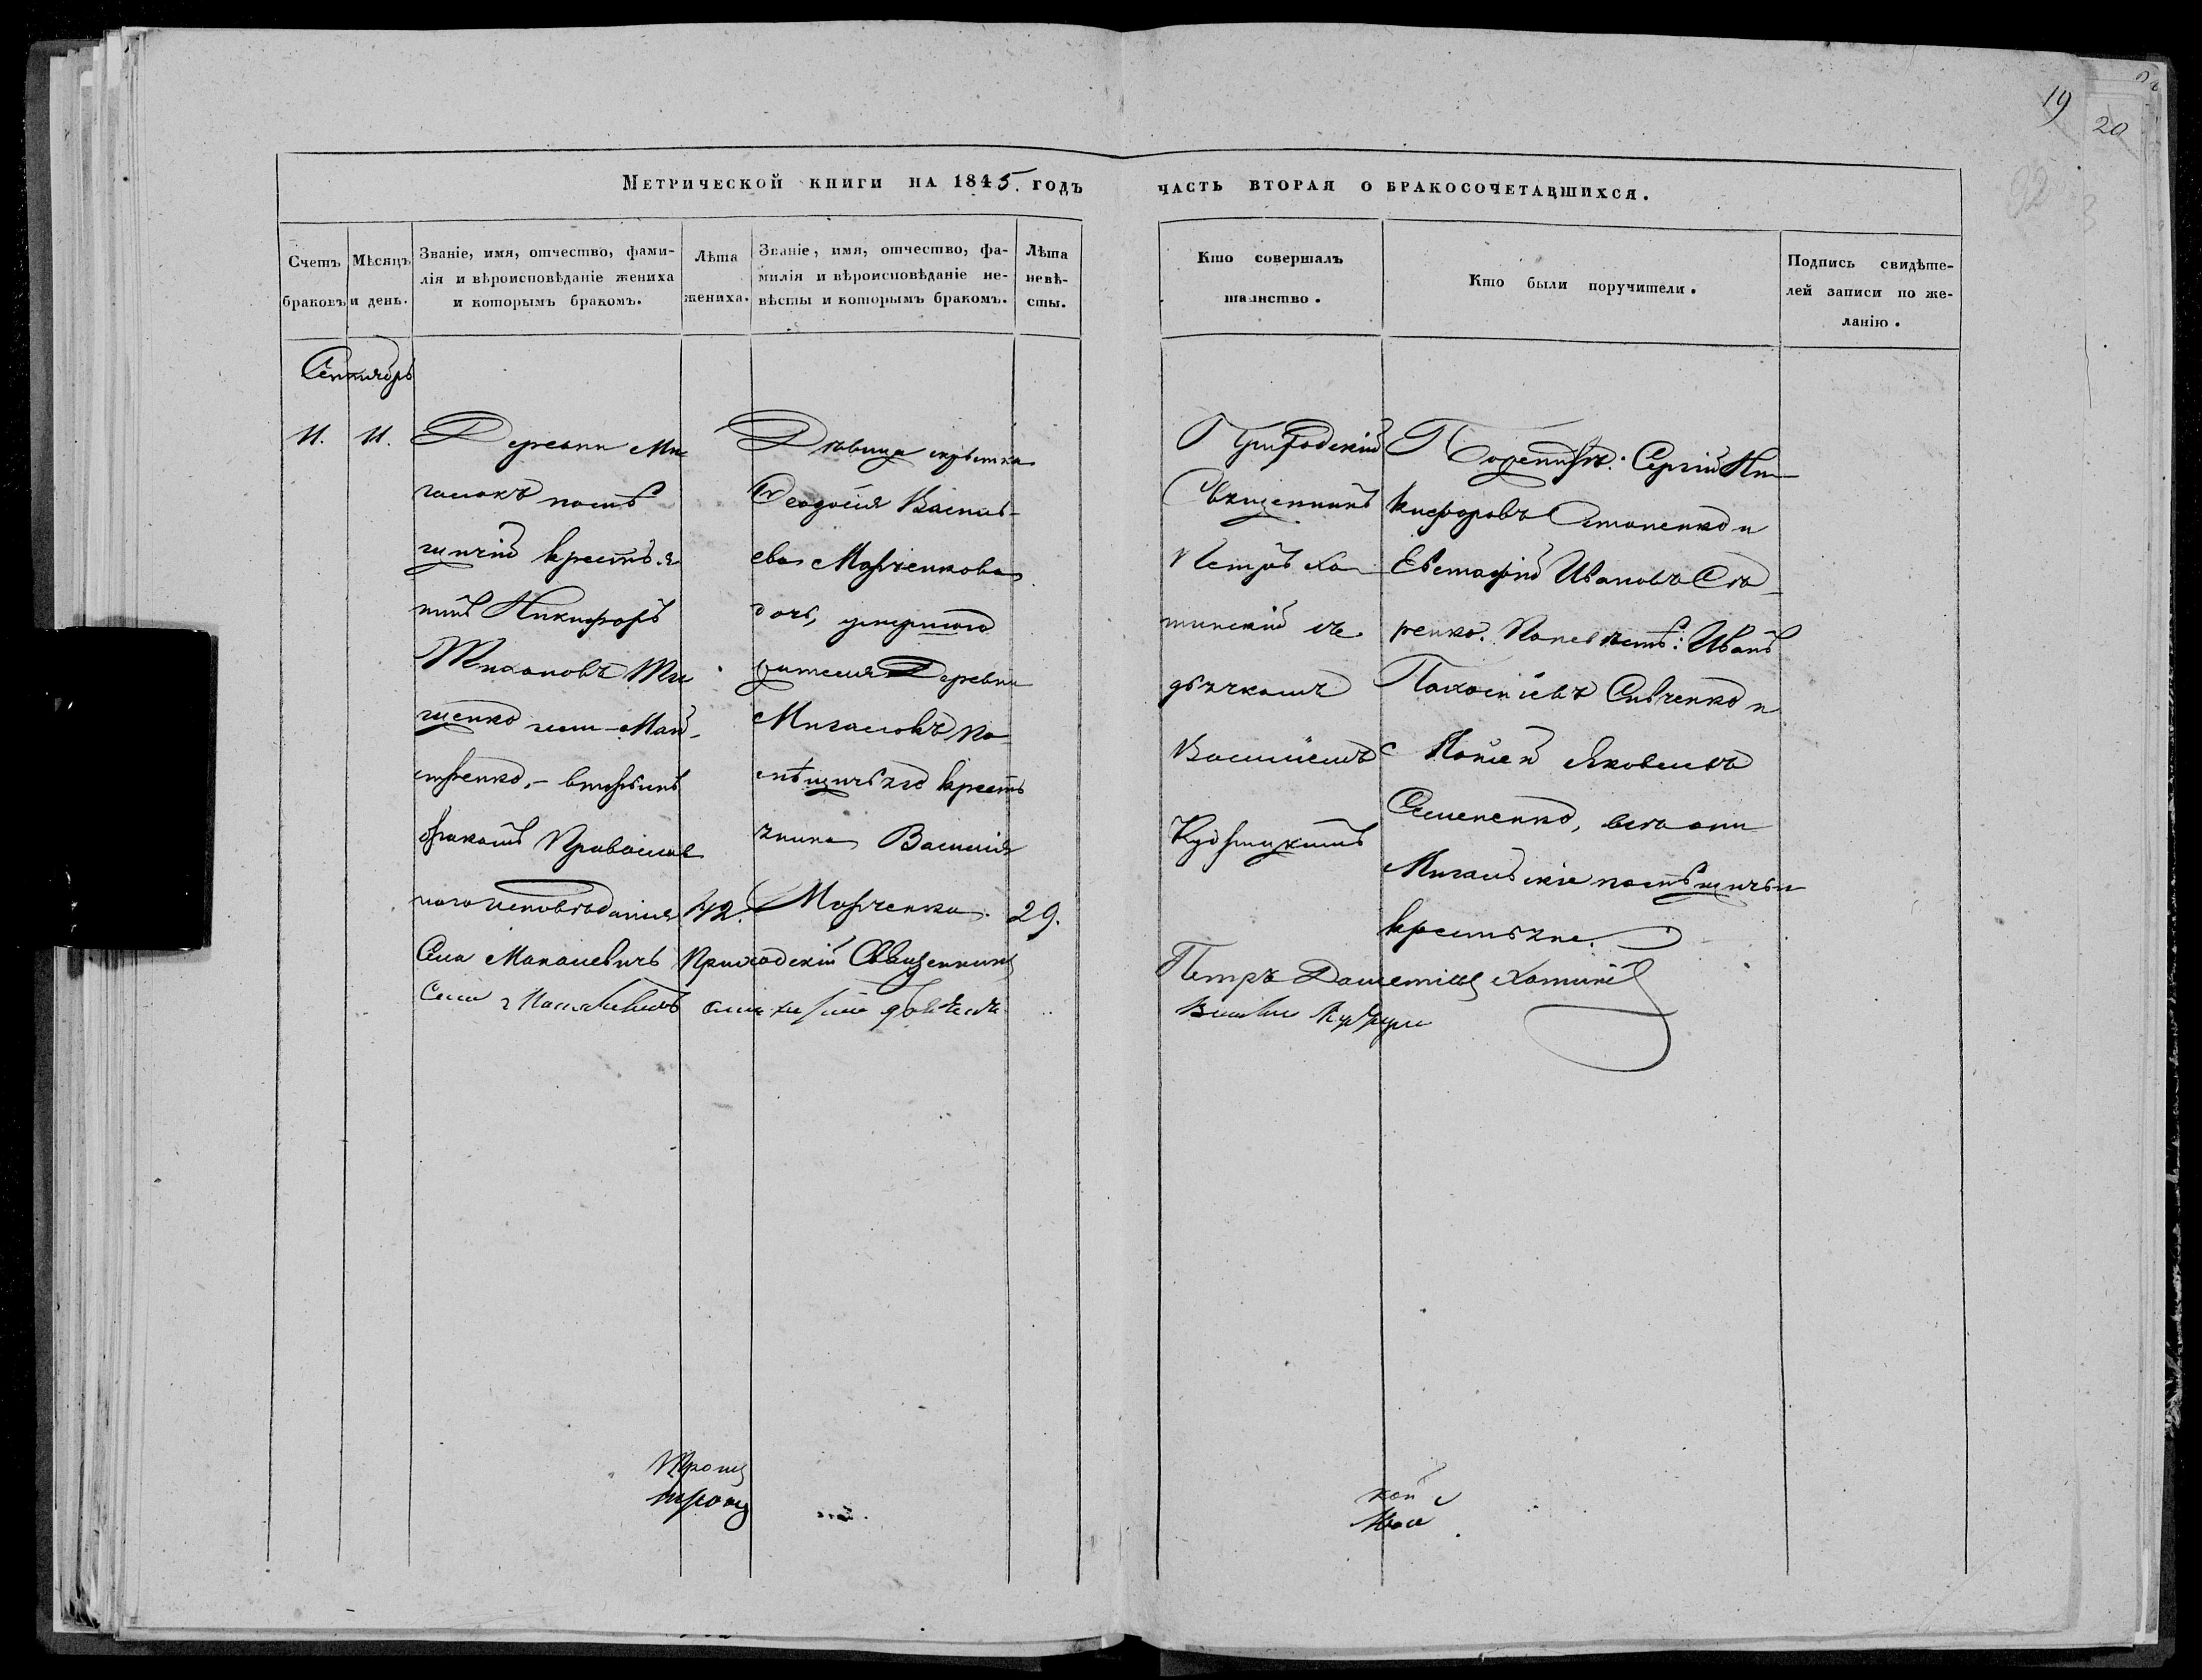 19
20
Метрической книги на 1845. годъ
часть вторая о бракосочетавшихся.
Счетъ браковъ
Мѣсяцъ и день.
Званіе, имя, отчество, фами-
лія и вѣроисповѣданіе жениха
и которымъ бракомъ.
Лѣта
жениха.
Званіе, имя, отчество, фа-
милія и вѣроисповѣданіе не-
вѣсты и которымъ бракомъ.
Лѣта
невѣ-
сты.
Кто совершалъ
таинство.
Кто были поручители.
Подпись свидѣте-
лей записи по же-
ланію.
Сентябрь
11. 11.
Деревни Ми-
галокъ помѣ
щичій крестья
нинъ Никифоръ
Тихоновъ
щенко
вторымъ
бракомъ Православ
наго исповѣданія
42.
Дѣвица
Ѳеодосія Василь-
ева Марченкова
дочь, умершаго
жителя Деревни
Мигалокъ по-
мѣщичьяго кресть
янина Василія
Марченка.
29.
Приходскій
Священникъ
Петръ Хо-
тинскій съ
дьячкомъ
Василіемъ
Кудрицкимъ
По женихѣ: Сергій Ни-
кифоровъ Степаненко и
Евстафій Ивановъ
ренко. По невѣстѣ: Иванъ
Савченко и
Яковлевъ
Семененко, всѣ они
Мигальскіе помѣщичьи
крестьяне.
Села Макалевичъ Приходскій Священникъ
Петръ Хотинскій
Села